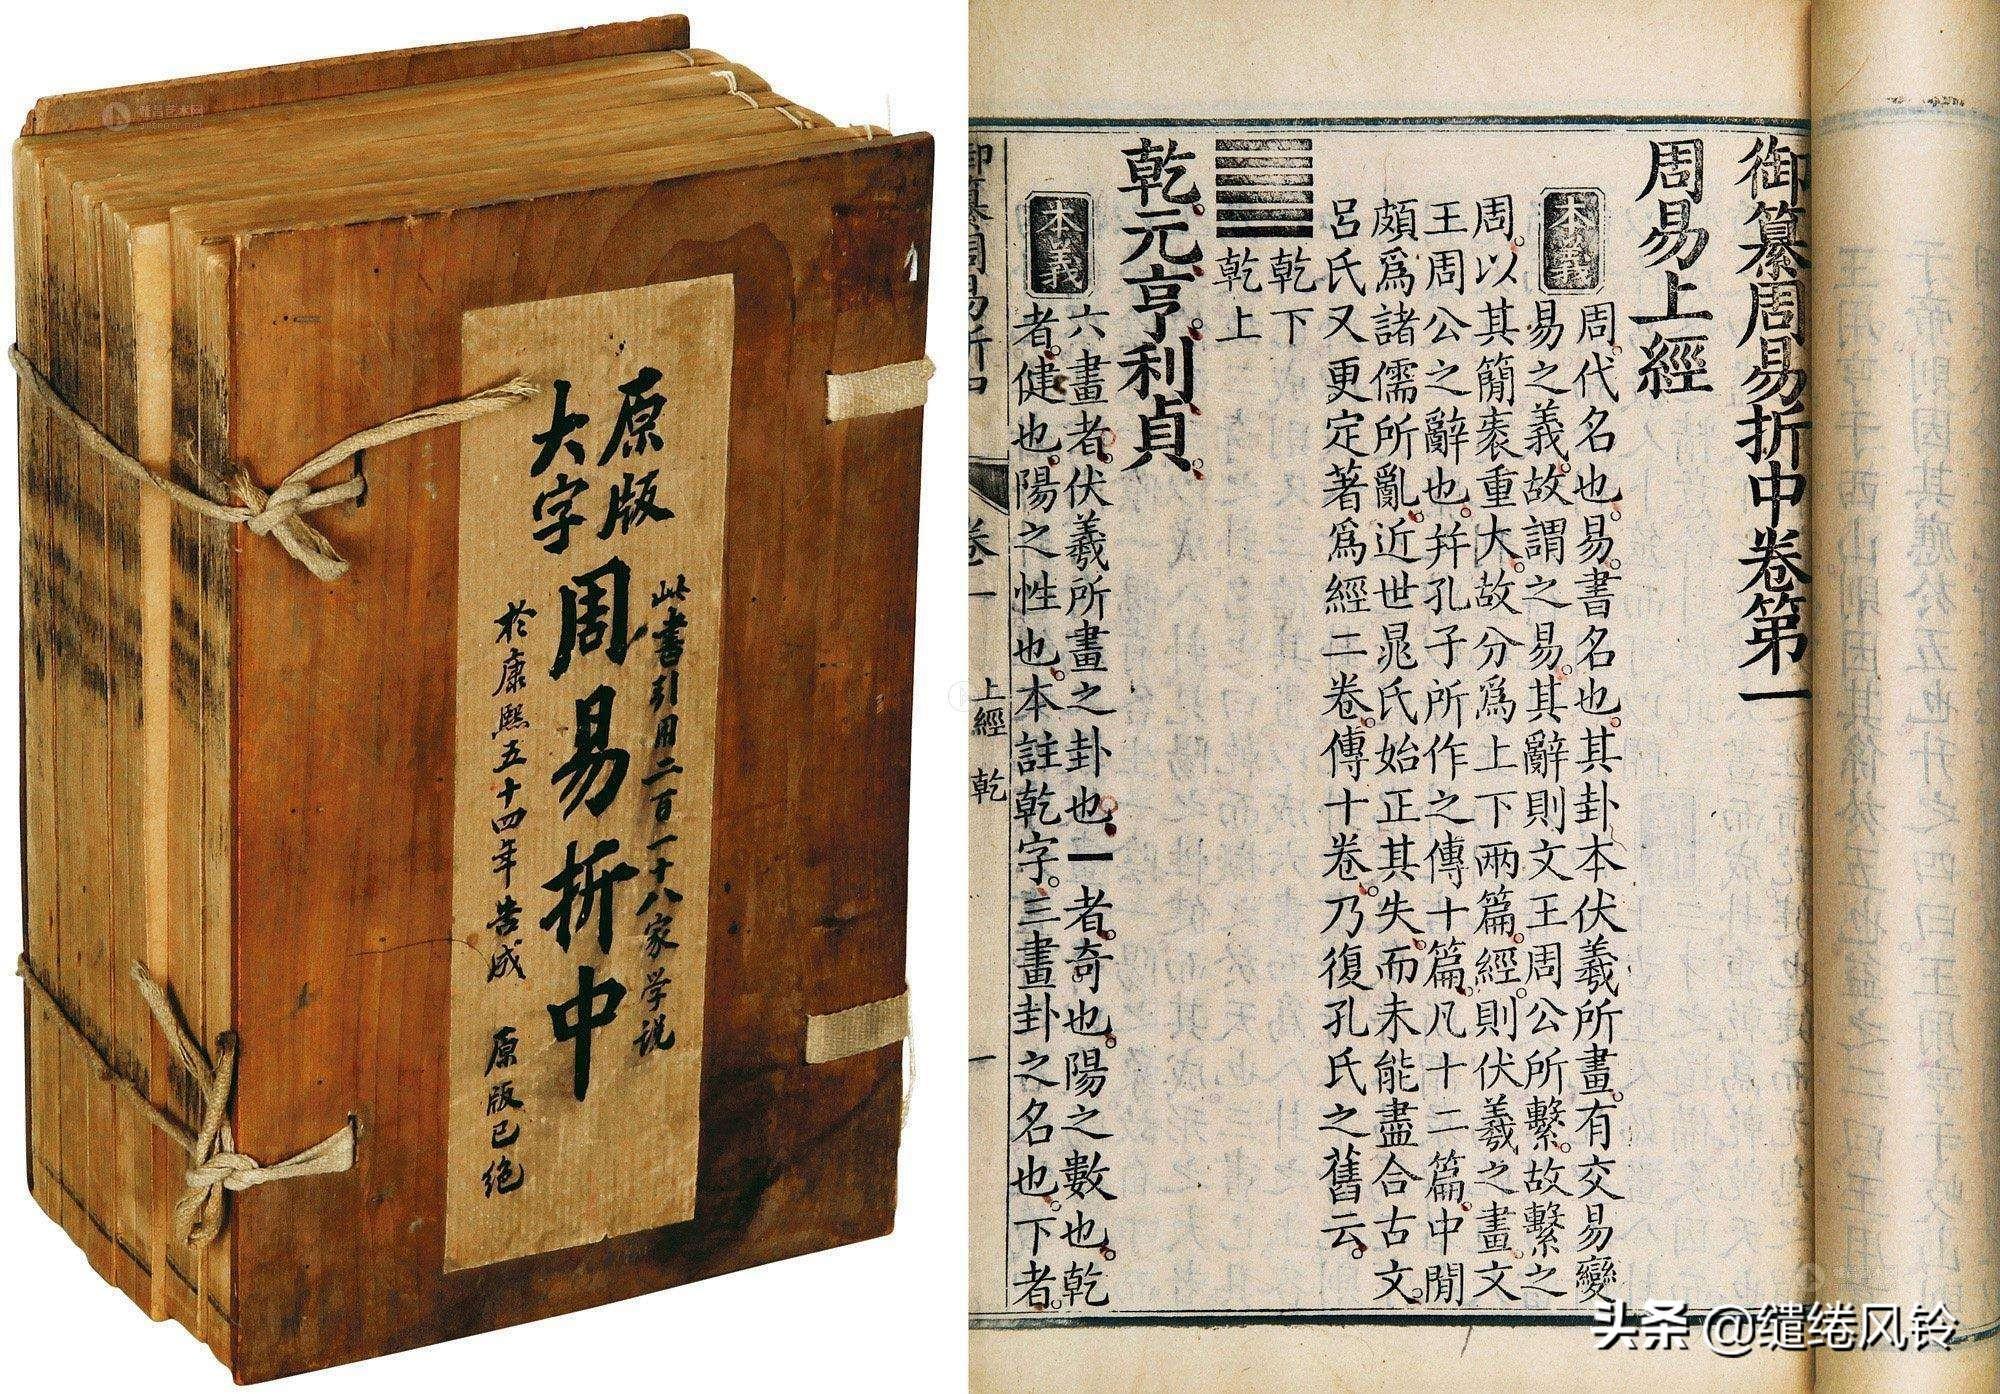 原版
大字
周易折中
此書引用二百一十八家学说
於康熙五十四年告成 原版已绝
御纂周易折中卷第一
周易上經
本義
周代名也易書名也其卦本伏羲所畫有交易變
易之義故謂之易其辭則文王周公所繫故繫之
周以其簡袠重大故分爲上下兩篇經則伏羲之畫文
王周公之辭也幷孔子所作之傳十篇凡十二篇中閒
頗爲諸儒所亂近世晁氏始正其失而未能盡合古文
呂氏又更定著爲經二卷傳十卷乃復孔氏之舊云
乾下
乾上
乾元亨利貞
本義
六畫者伏羲所畫之卦也一者奇也陽之數也乾
者健也陽之性也本註乾字三畫卦之名也下者
御纂周易折中
卷一
上經 乾
一
头条 @缱绻风铃